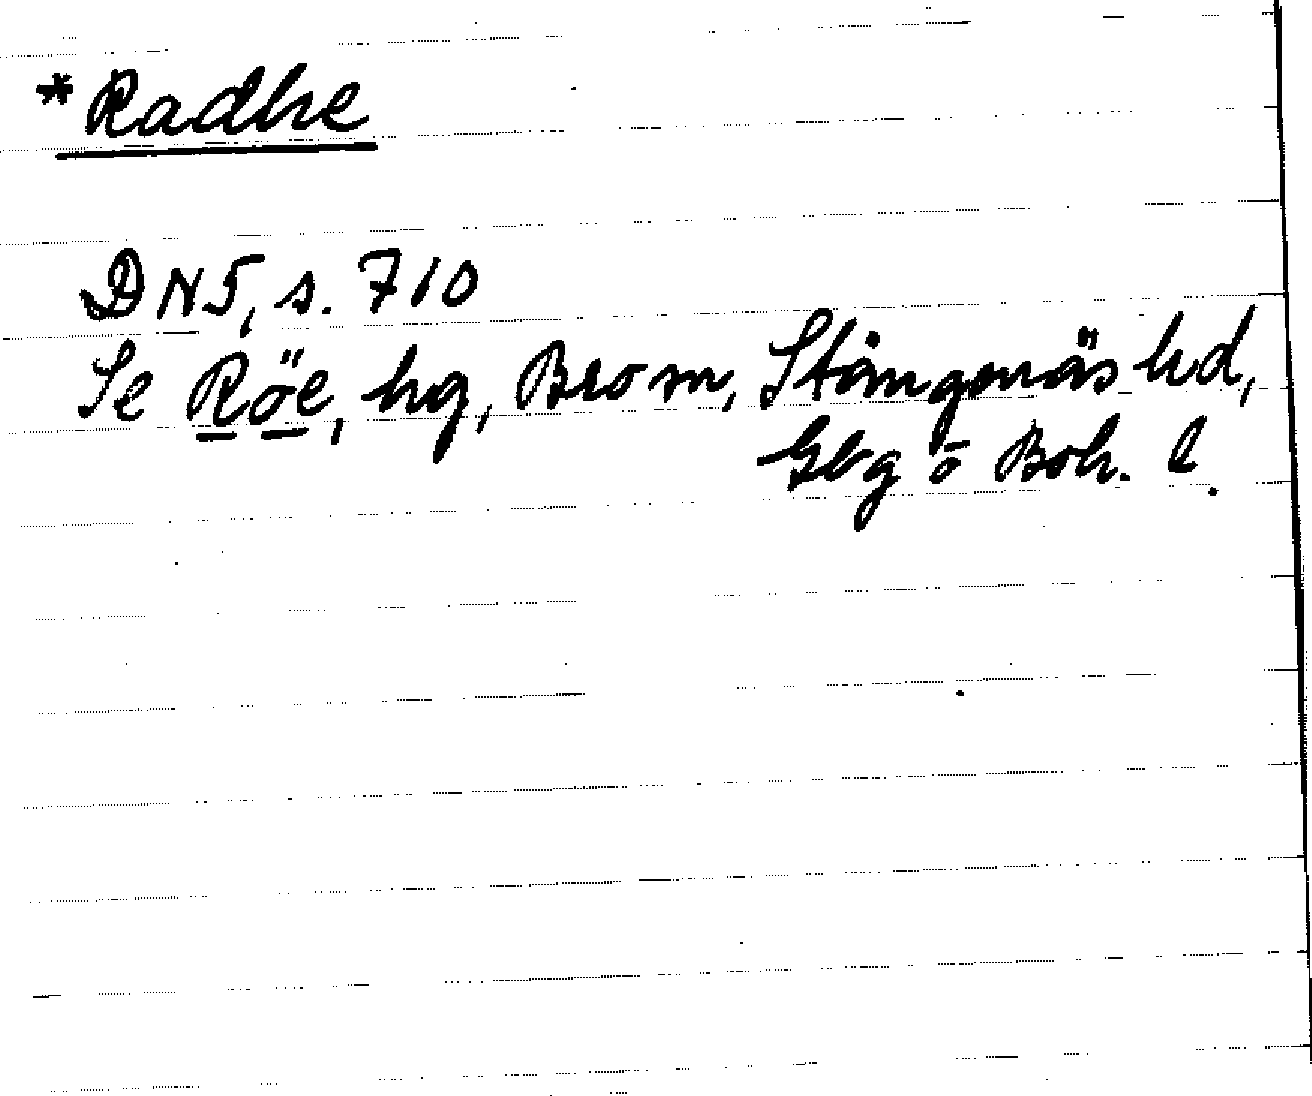 *Radhe
DN5, s. 710
Se Röe, hg, Brom, Stångenäs hd,
Gbg o Boh. l.